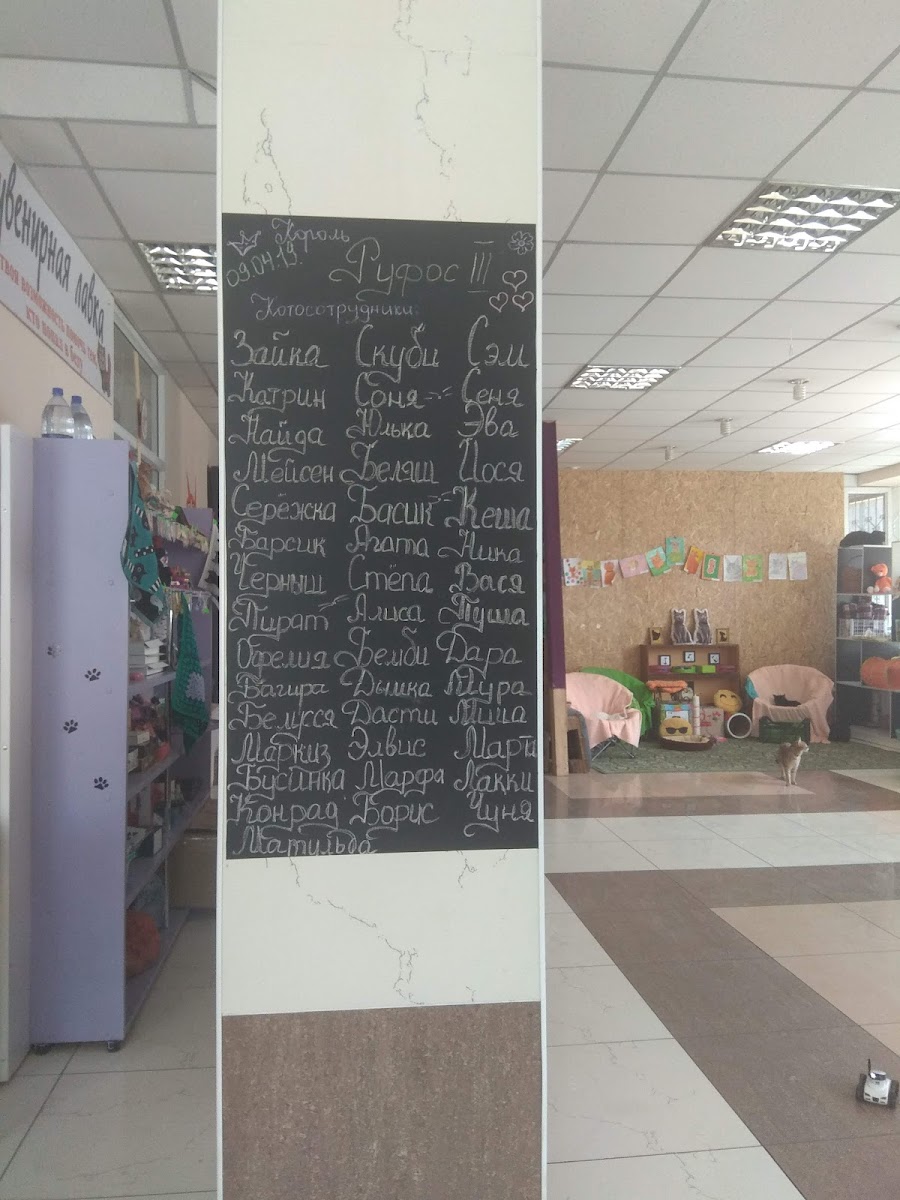 увенирная лавка
твоя возможность помочь тем,
кто попал в беду
Король
09.04.19.
Руфос III
Котосотрудники:
Зайка Скуби Сэм
Катрин Соня Сеня
Найда Юлька Эва
Мейсен Беляш Йося
Серёжка Басик Кеша
Барсик Агата Ника
Черныш Стёпа Вася
Пират Алиса Пуша
Офелия Бемби Дара
Багира Дымка Мура
Белуся Дасти Миша
Маркиз Элвис Марти
Бусинка Марфа Лакки
Конрад Борис Чуня
Матильда